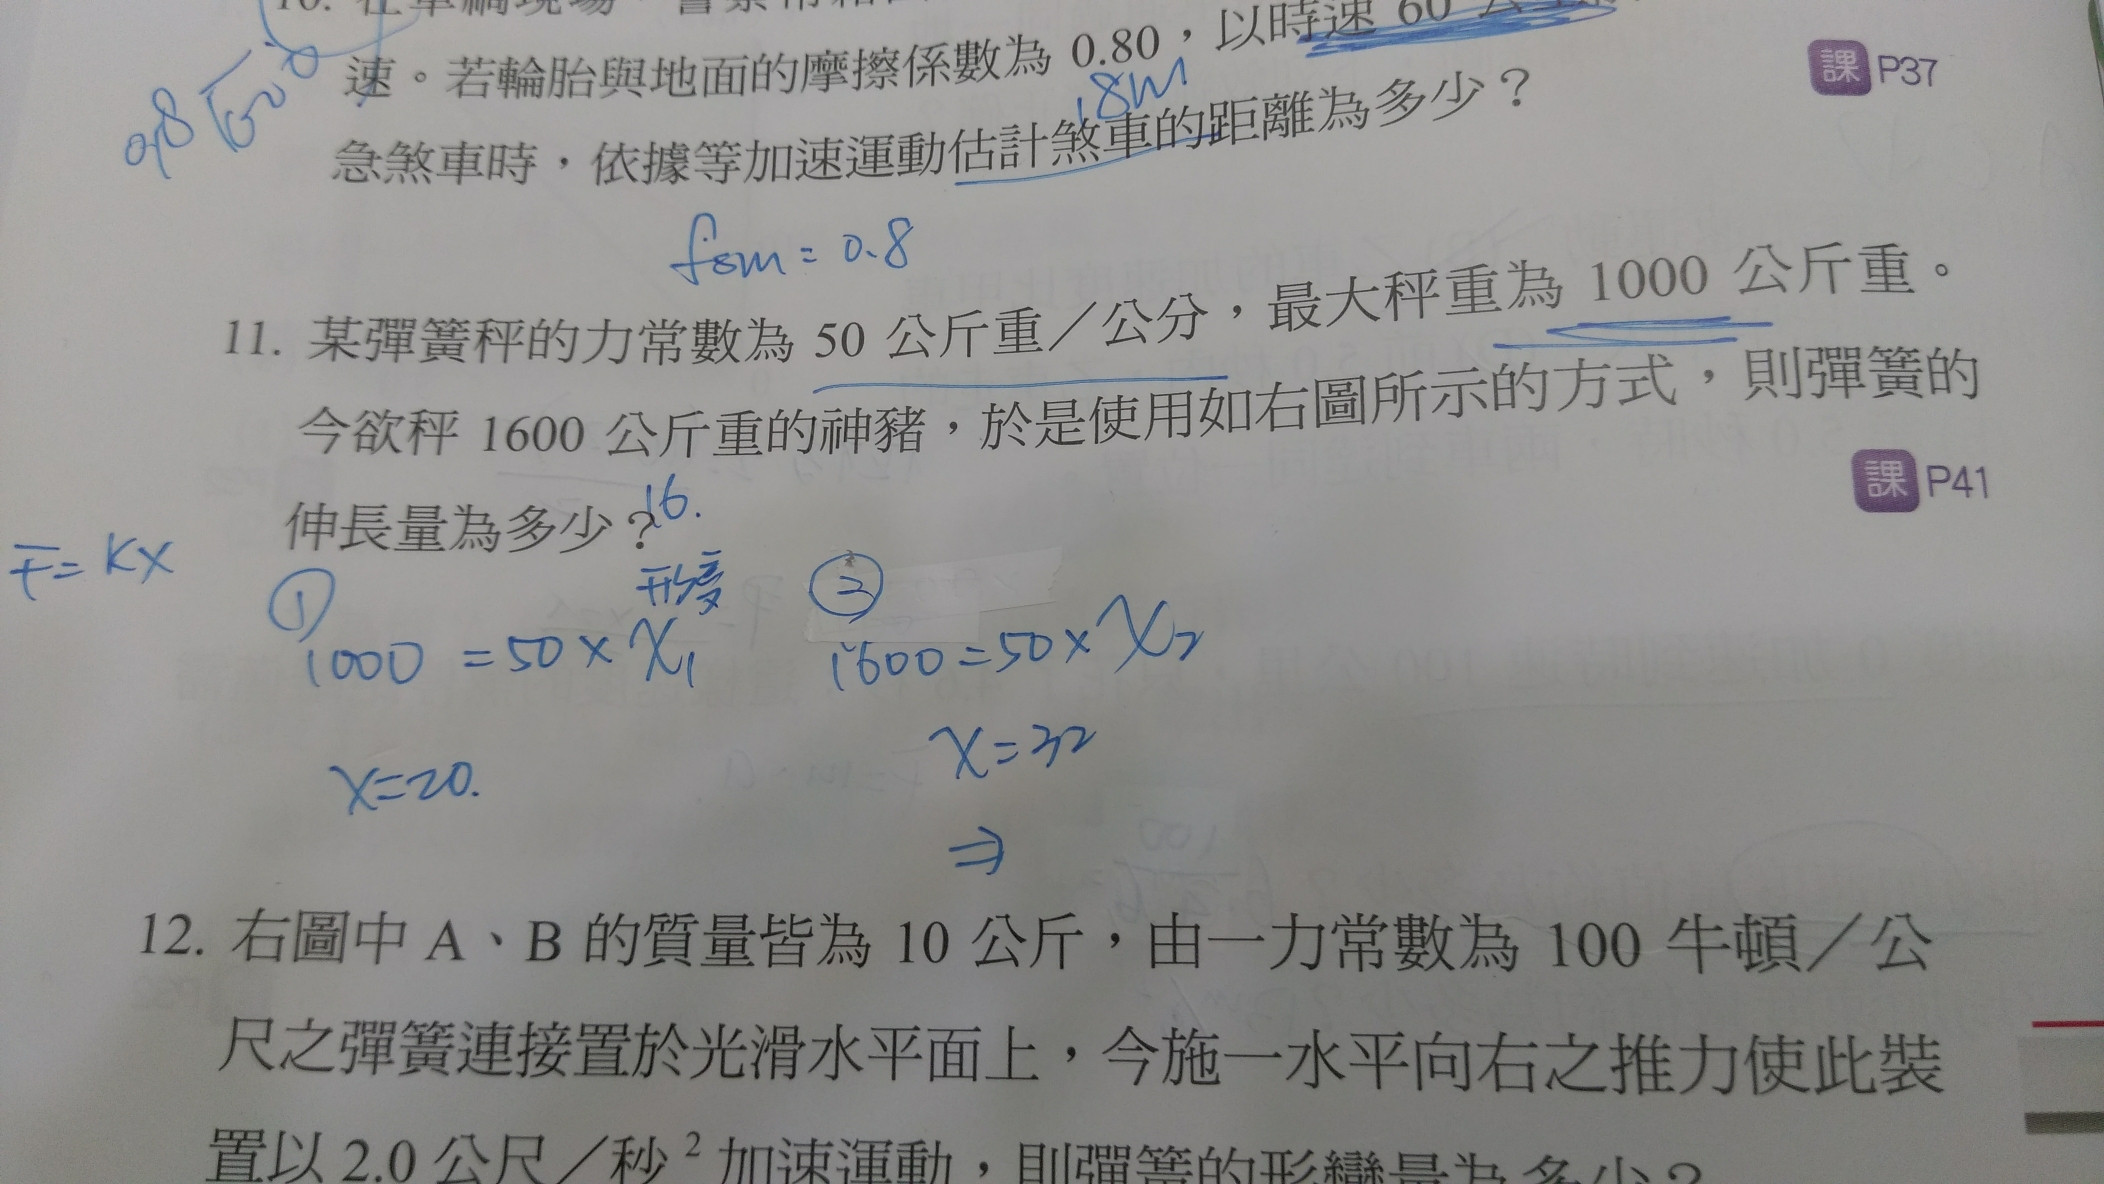 速。若輪胎與地面的摩擦係數為 0.80,以時速 60
18m
課 P37
急煞車時,依據等加速運動估計煞車的距離為多少?
fsm = 0.8
11. 某彈簧秤的力常數為 50 公斤重/公分,最大秤重為 1000 公斤重。
今欲秤 1600 公斤重的神豬,於是使用如右圖所示的方式,則彈簧的
課 P41
伸長量為多少?
16.
F = KX
① 形變 ②
1000 = 50 × X₁ 1600 = 50 × X₂
X = 32
X = 20.
⇒
12. 右圖中 A、B 的質量皆為 10 公斤,由一力常數為 100 牛頓/公
尺之彈簧連接置於光滑水平面上,今施一水平向右之推力使此裝
置以 2.0 公尺/秒² 加速運動,則彈簧的形變量為多少?